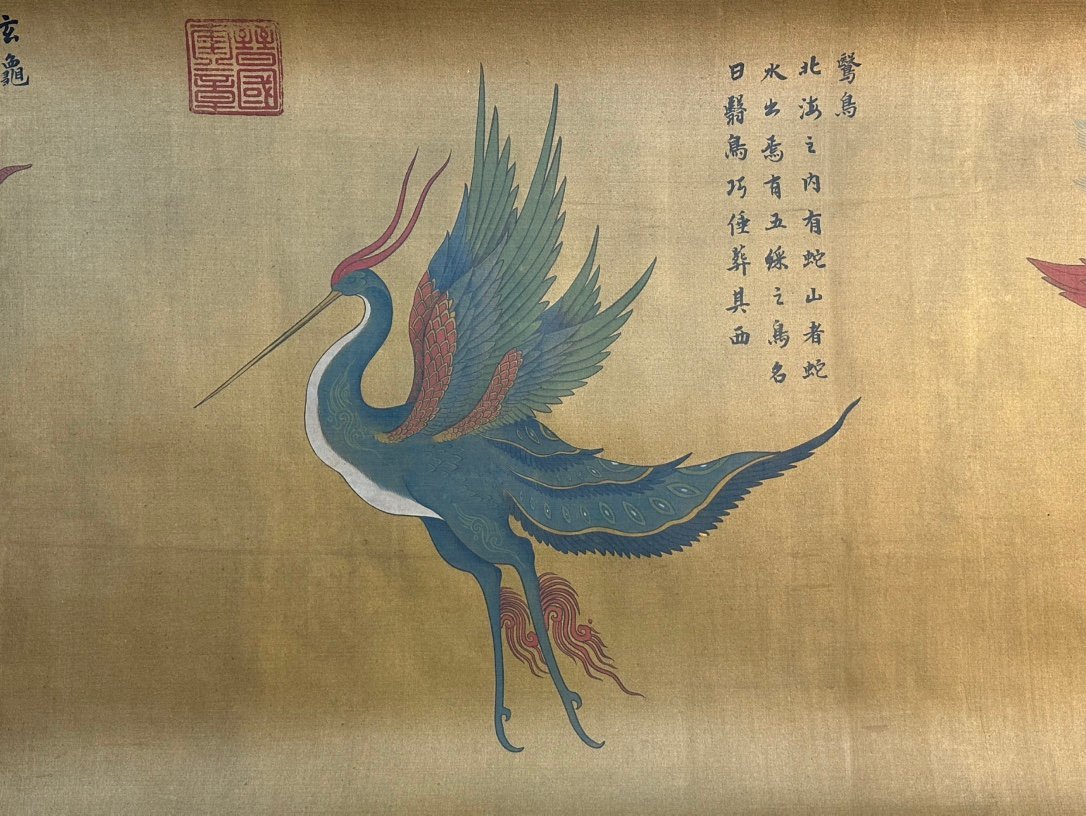 鷖鳥
北海之内有蛇山者蛇
水出焉有五綵之鳥名
曰翳鳥巧倕葬其西
晉國奎章
玄龜